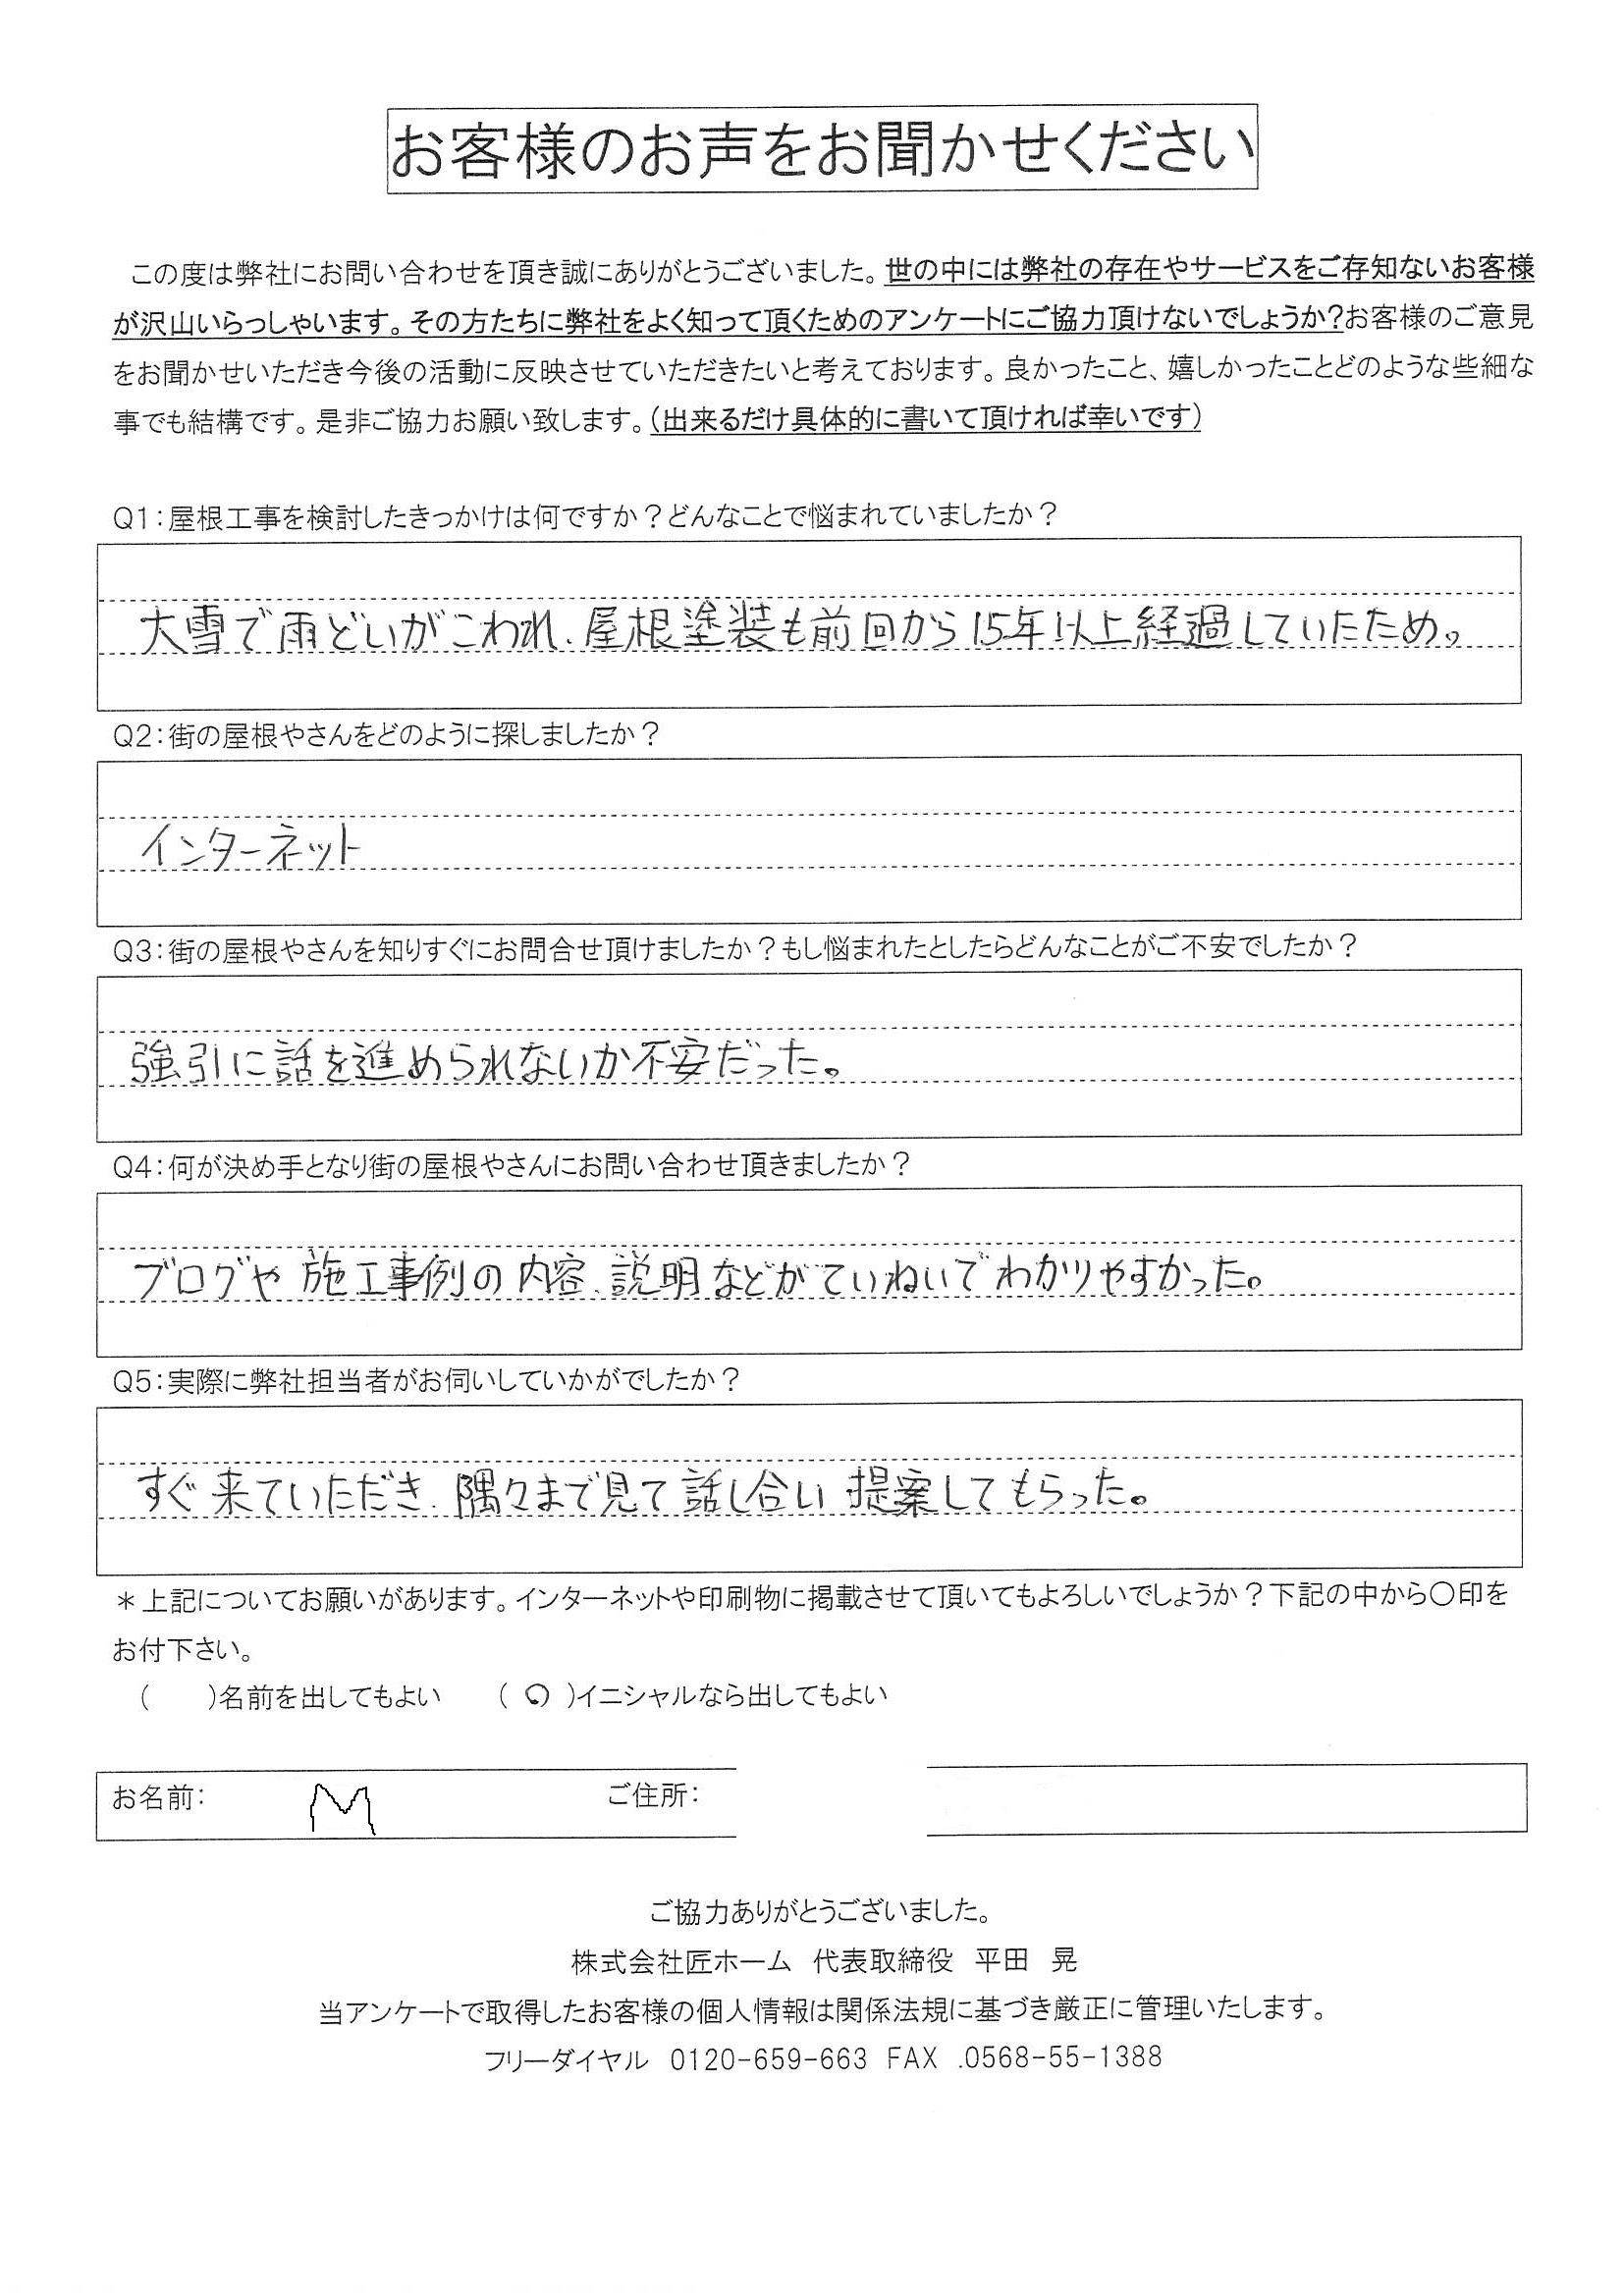 お客様のお声をお聞かせください
この度は弊社にお問い合わせを頂き誠にありがとうございました。世の中には弊社の存在やサービスをご存知ないお客様
が沢山いらっしゃいます。その方たちに弊社をよく知って頂くためのアンケートにご協力頂けないでしょうか?お客様のご意見
をお聞かせいただき今後の活動に反映させていただきたいと考えております。良かったこと、嬉しかったことどのような些細な
事でも結構です。是非ご協力お願い致します。(出来るだけ具体的に書いて頂ければ幸いです)
Q1:屋根工事を検討したきっかけは何ですか?どんなことで悩まれていましたか?
大雪で雨どいがこわれ、屋根塗装も前回から15年以上経過していたため。
Q2:街の屋根やさんをどのように探しましたか?
インターネット
Q3:街の屋根やさんを知りすぐにお問合せ頂けましたか?もし悩まれたとしたらどんなことがご不安でしたか?
強引に話を進められないか不安だった。
Q4:何が決め手となり街の屋根やさんにお問い合わせ頂きましたか?
ブログや施工事例の内容、説明などがていねいでわかりやすかった。
Q5:実際に弊社担当者がお伺いしていかがでしたか?
すぐ来ていただき、隅々まで見て話し合い提案してもらった。
*上記についてお願いがあります。インターネットや印刷物に掲載させて頂いてもよろしいでしょうか?下記の中から〇印を
お付下さい。
(　　)名前を出してもよい　　( 〇 )イニシャルなら出してもよい
お名前:　M　ご住所:
ご協力ありがとうございました。
株式会社匠ホーム　代表取締役　平田　晃
当アンケートで取得したお客様の個人情報は関係法規に基づき厳正に管理いたします。
フリーダイヤル　0120-659-663 FAX .0568-55-1388